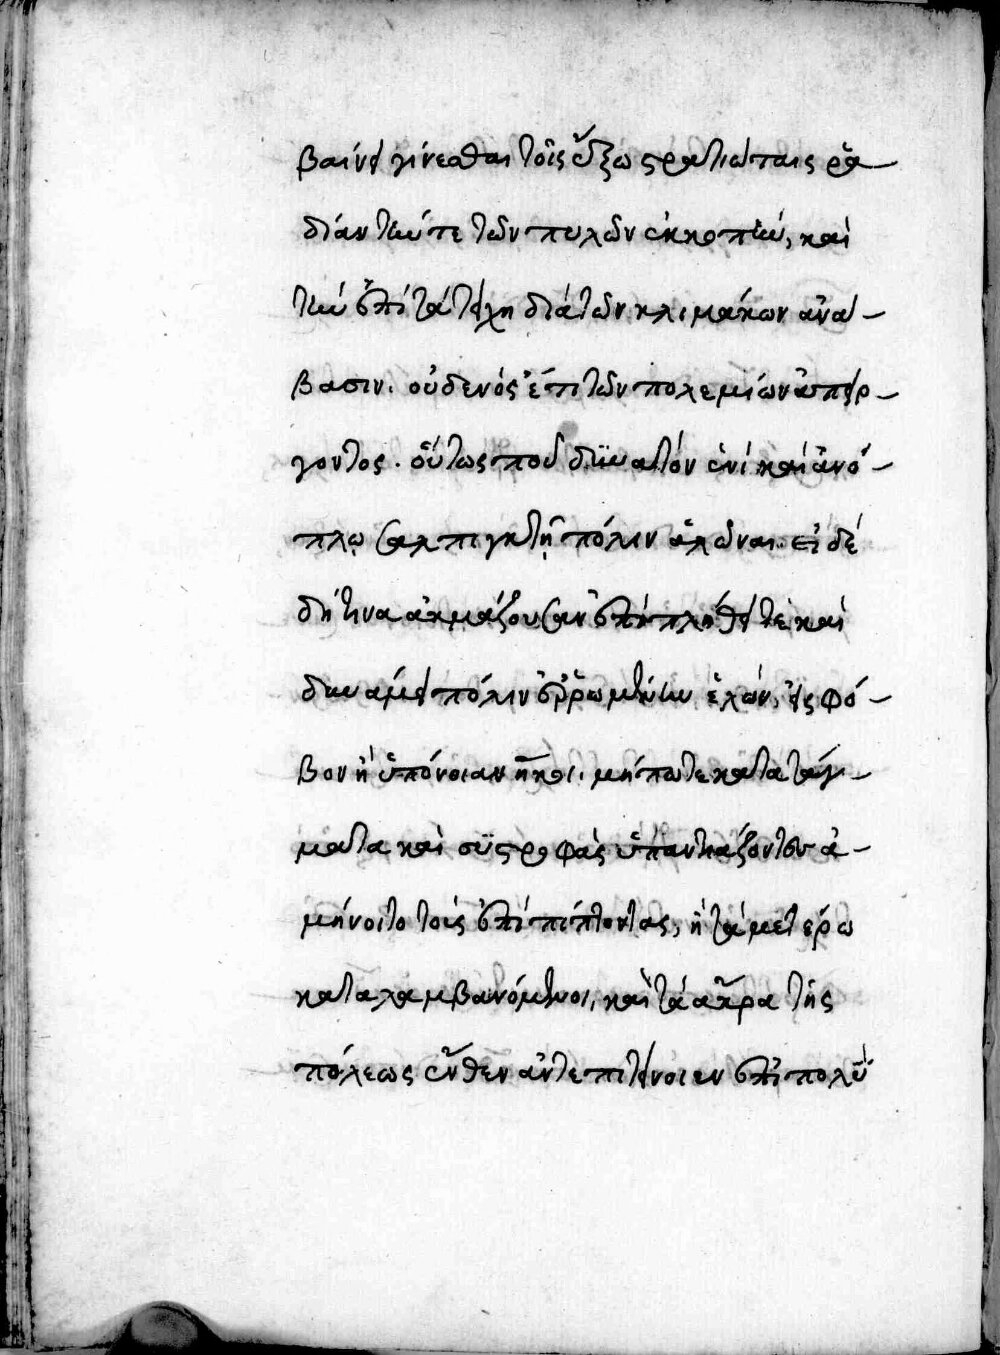 βαίνει γίνεσθαι τοῖς ἔξω στρατιώταις ῥα
δίαν τήν τε τῶν πυλῶν ἐκκοπήν, καὶ
τὴν ἐπὶ τὰ τείχη διὰ τῶν κλιμάκων ἀνά
βασιν. οὐδενὸς ἔτι τῶν πολεμίων ἀπείρ
γοντος. οὕτως που δυνατὸν ἑνὶ καὶ ἀνό
πλῳ σαλπιγκτῇ πόλιν ἁλῶναι. εἰ δέ
δή τινα ἀκμάζουσαν ἐπὶ πλήθει τε καὶ
δυνάμει πόλιν ἐρρωμένην ἑλών, εἰς φό
βον ἢ ὑπόνοιαν ἥκοι. μήποτε κατὰ τάγ
ματα καὶ συστροφὰς ὑπαντιάζοντες ἀ
μύνοιτο τοὺς ἐπιπίπτοντας, ἢ τὰ μετεώρω
καταλαμβανόμενοι, καὶ τὰ ἄκρα τῆς
πόλεως ἔνθεν ἀντεπιτείνοιεν ἐπὶ πολὺ